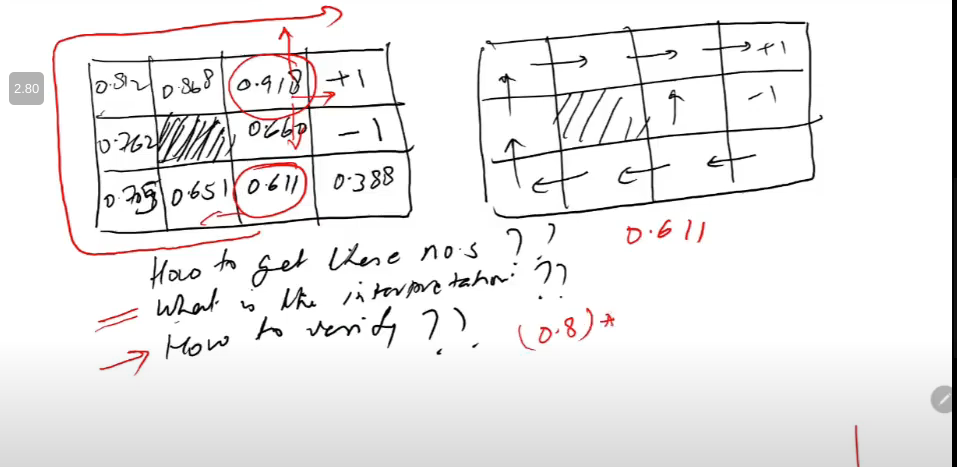 2.80
0.812 0.868 0.918 +1
0.762 0.660 -1
0.705 0.651 0.611 0.388
→ → → +1
↑ ↑ -1
↑ ← ← ←
0.611
How to get these no.s ??
What is the interpretation ??
→ How to verify ??
(0.8) *